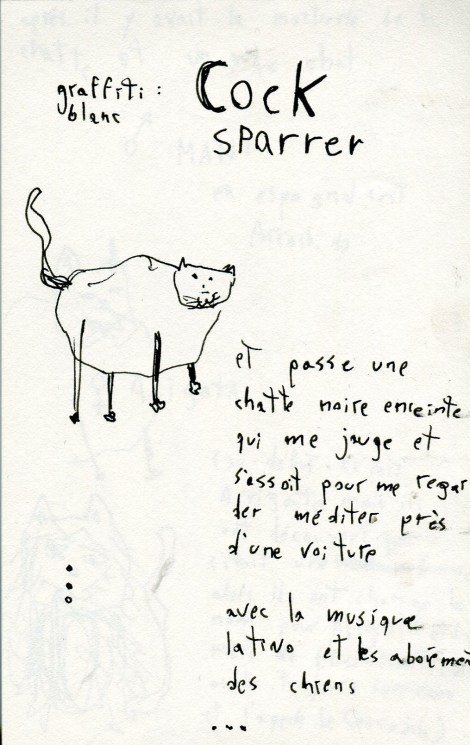 graffiti :
blanc
Cock
sparrer
et passe une
chatte noire enceinte
qui me jauge et
s'assoit pour me regar
der méditer près
d'une voiture
avec la musique
latino et les aboiemen
des chiens
...